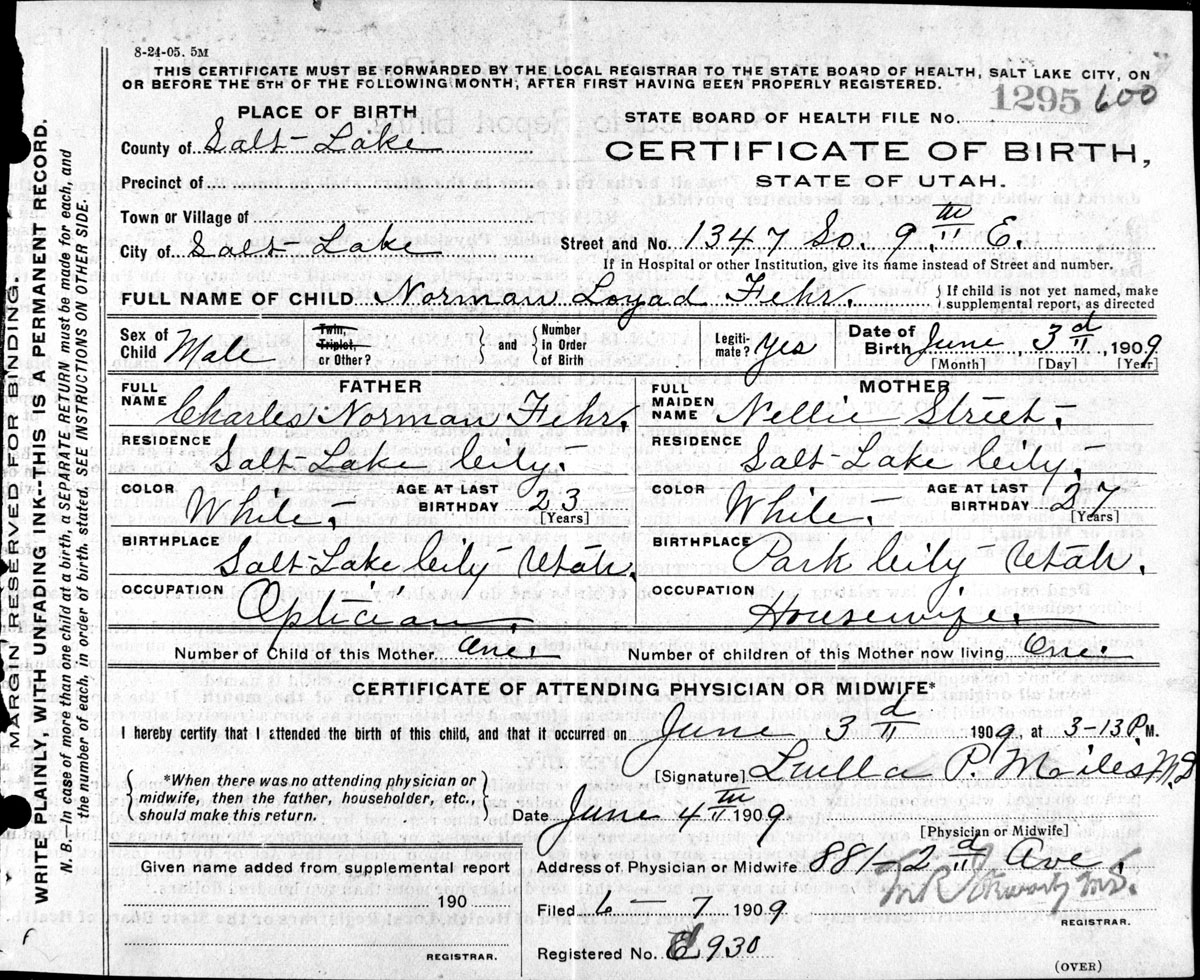 8-24-05. 5M
THIS CERTIFICATE MUST BE FORWARDED BY THE LOCAL REGISTRAR TO THE STATE BOARD OF HEALTH, SALT LAKE CITY, ON
OR BEFORE THE 5TH OF THE FOLLOWING MONTH, AFTER FIRST HAVING BEEN PROPERLY REGISTERED.
PLACE OF BIRTH
STATE BOARD OF HEALTH FILE No. 1295 600
County of Salt-Lake
CERTIFICATE OF BIRTH,
STATE OF UTAH.
Precinct of
Town or Village of
City of Salt-Lake Street and No. 1347 So. 9th E.
If in Hospital or other Institution, give its name instead of Street and number.
FULL NAME OF CHILD. Norman Loyad Fehr. { If child is not yet named, make
supplemental report, as directed
Sex of Child Male Twin, Triplet, or Other? } and { Number in Order of Birth Legiti-mate? Yes Date of Birth June 3d, 1909
[Month] [Day] [Year]
FATHER MOTHER
FULL NAME Charles Norman Fehr. FULL MAIDEN NAME Nellie Street.-
RESIDENCE Salt Lake City. RESIDENCE Salt-Lake City.
COLOR White.- AGE AT LAST BIRTHDAY 23 [Years] COLOR White.- AGE AT LAST BIRTHDAY 27 [Years]
BIRTHPLACE Salt-Lake City Utah. BIRTHPLACE Park City Utah.
OCCUPATION Optician. OCCUPATION Housewife.
Number of Child of this Mother One. Number of children of this Mother now living One.
CERTIFICATE OF ATTENDING PHYSICIAN OR MIDWIFE*
I hereby certify that I attended the birth of this child, and that it occurred on June 3d 1909, at 3-13 P.M.
{ *When there was no attending physician or
midwife, then the father, householder, etc.,
should make this return. }
[Signature] Luella P. Miles M.D
Date June 4th 1909 [Physician or Midwife]
Given name added from supplemental report
190
REGISTRAR.
Address of Physician or Midwife 881-2d Ave.
Filed 6-7 1909
REGISTRAR.
Registered No. 930
(OVER)
MARGIN RESERVED FOR BINDING.
WRITE PLAINLY, WITH UNFADING INK--THIS IS A PERMANENT RECORD.
N. B.--In case of more than one child at a birth, a SEPARATE RETURN must be made for each, and
the number of each, in order of birth, stated. SEE INSTRUCTIONS ON OTHER SIDE.